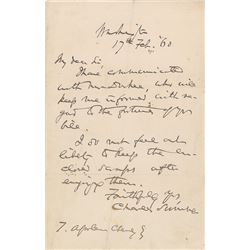 Washington
17th Feb. '60
My dear Sir,
I have communicated
with
, who will
keep me informed with re-
gard to the fortunes of yr
bill.
I do not feel
likely to keep the en-
closed
after
enjoying them.
Faithfully Yrs
Charles Sumner